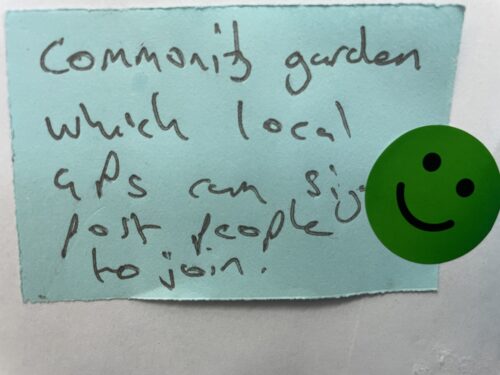 Community garden
which local
GPs can sig
post people
to join.